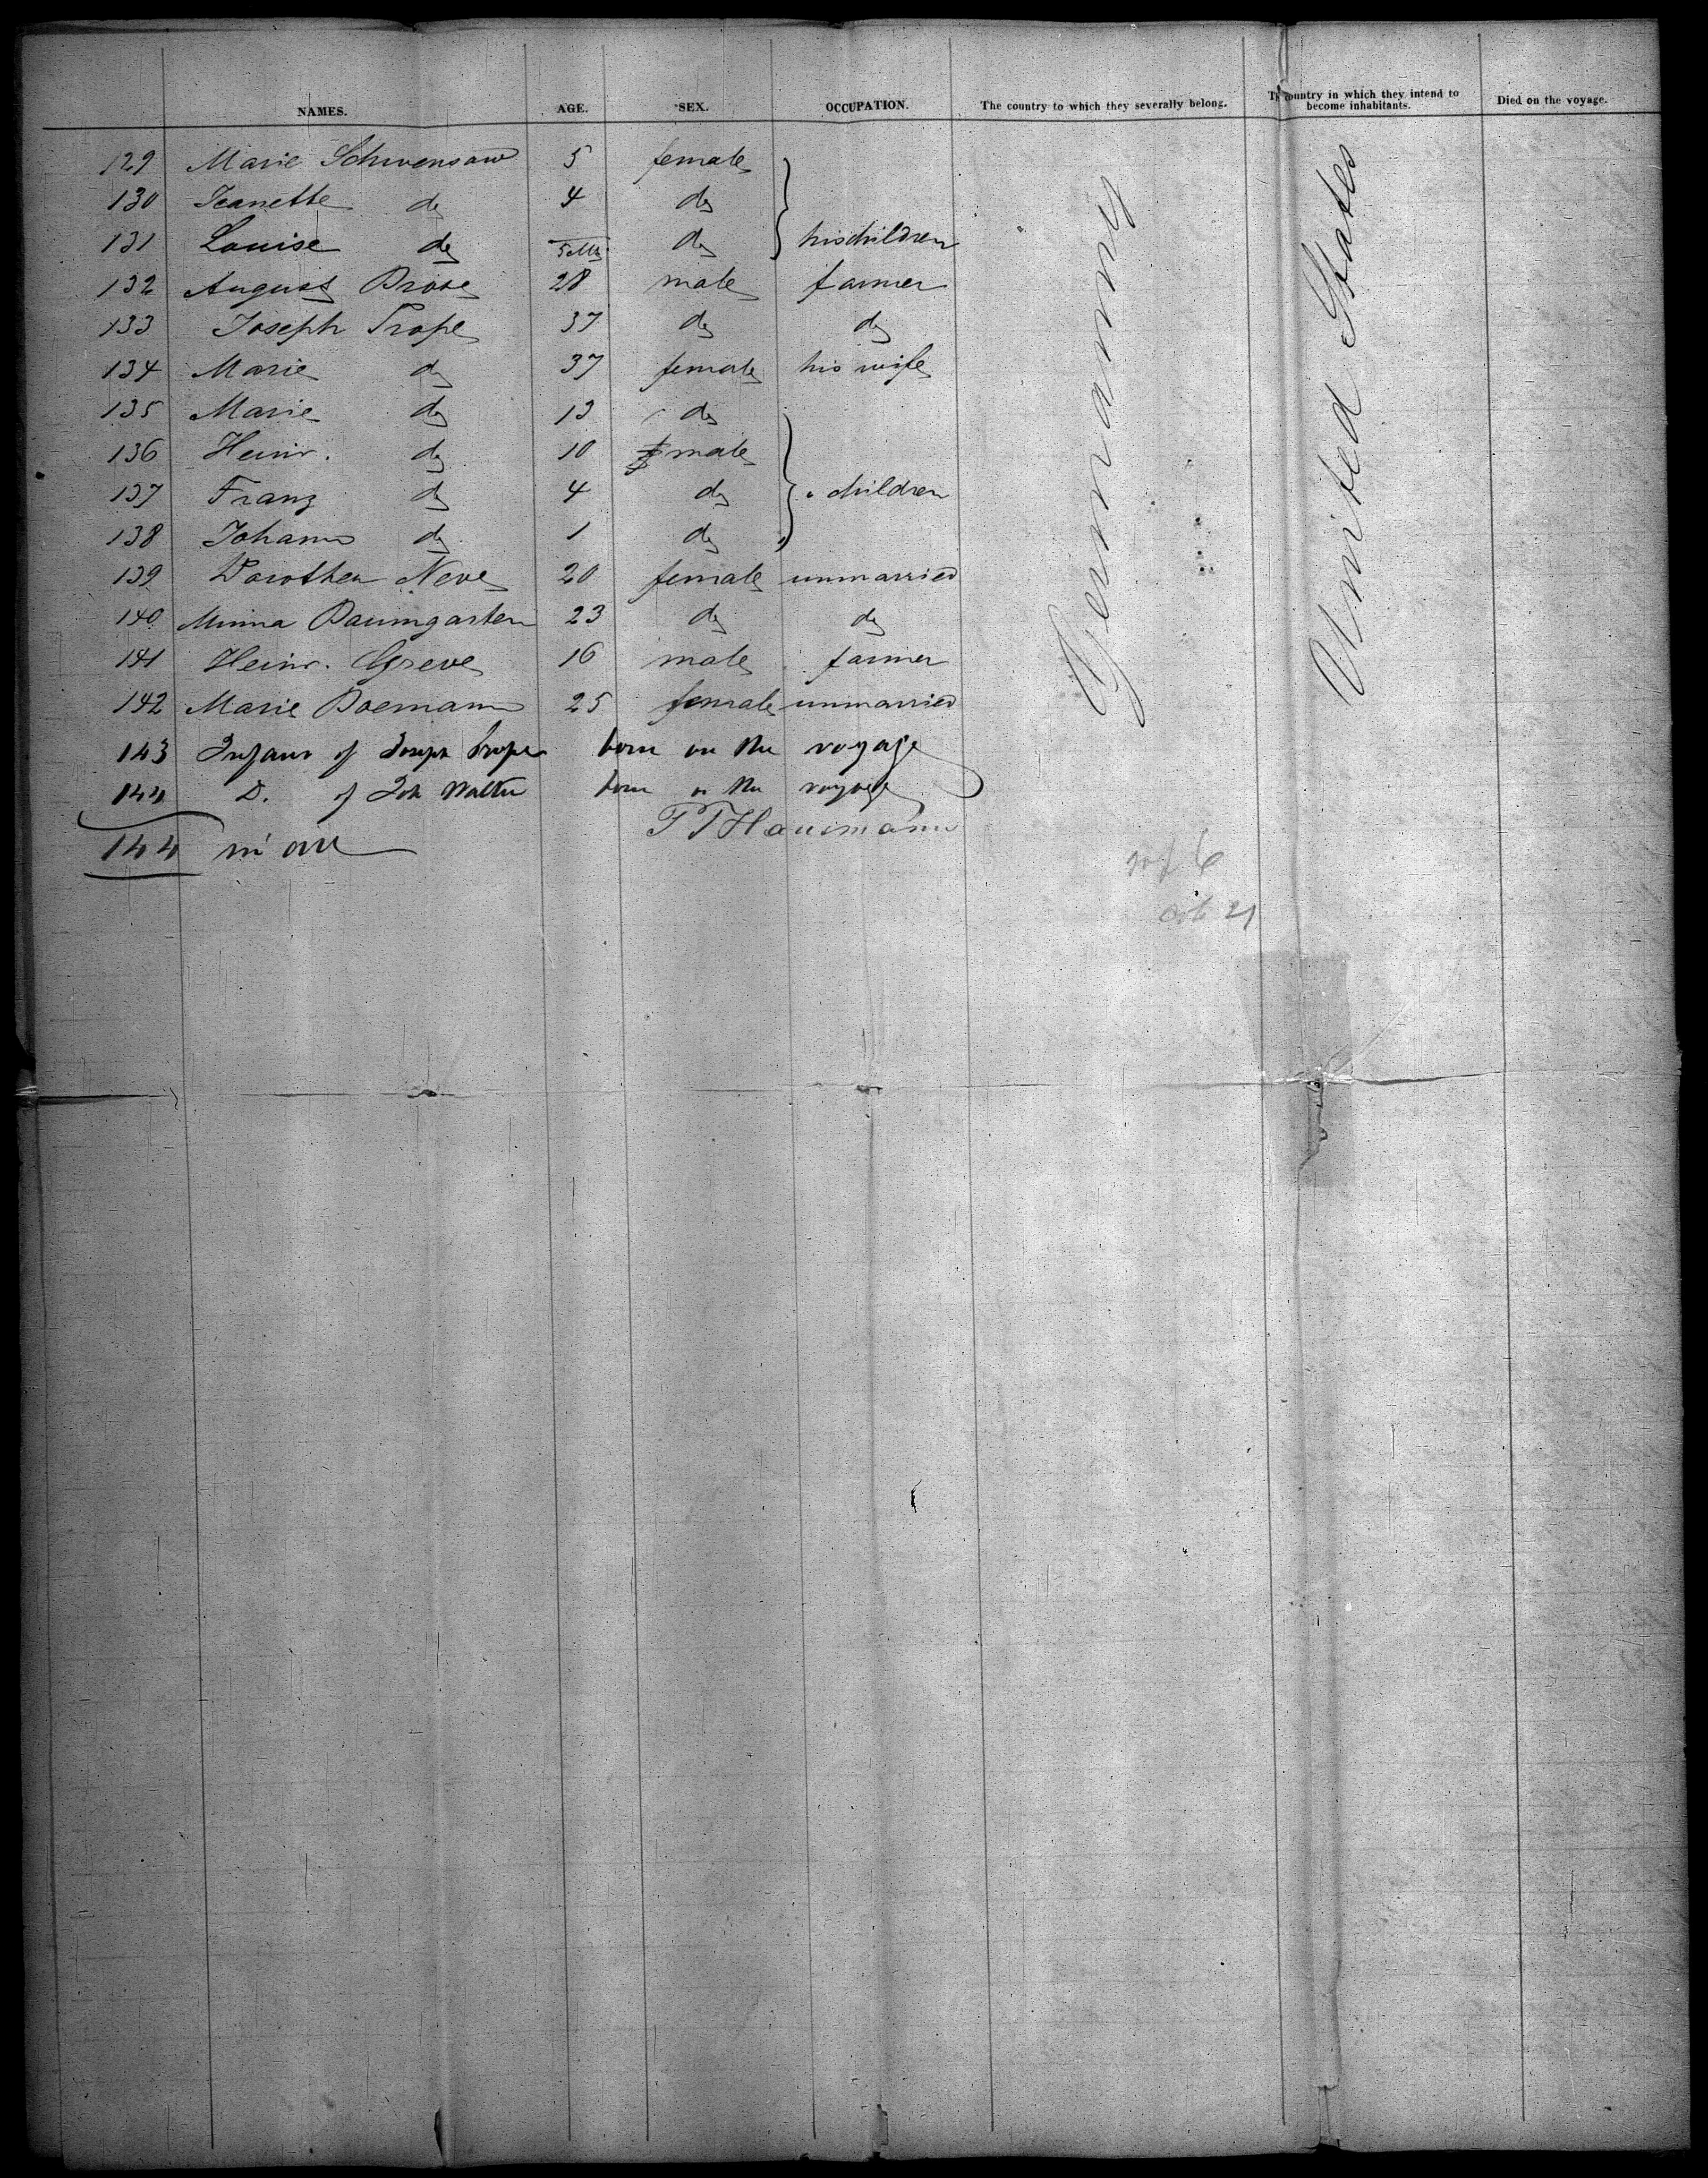 NAMES. AGE. SEX. OCCUPATION. The country to which they severally belong. The country in which they intend to become inhabitants. Died on the voyage.
129 Marie Schwensow 5 female
130 Jeanette do 4 do
131 Louise do 5 Mts do his children
132 August Brose 28 male farmer
133 Joseph Trope 37 do do
134 Marie do 37 female his wife
135 Marie do 13 do
136 Heinr. do 10 male
137 Franz do 4 do " children
138 Johann do 1 do
139 Dorothea Neve 20 female unmarried
140 Minna Baumgarten 23 do do
141 Heinr. Greve 16 male farmer
142 Marie Boemann 25 female unmarried
143 Infant of Joseph Trope born on the voyage
144 D. of Joh Walter born on the voyage
144 in all
Hausmann
Germanny
United States